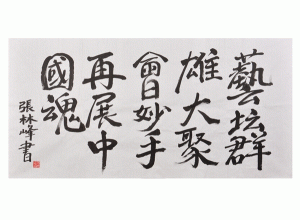 藝壇群
雄大聚
會日妙手
再展中
國魂
張林峰書